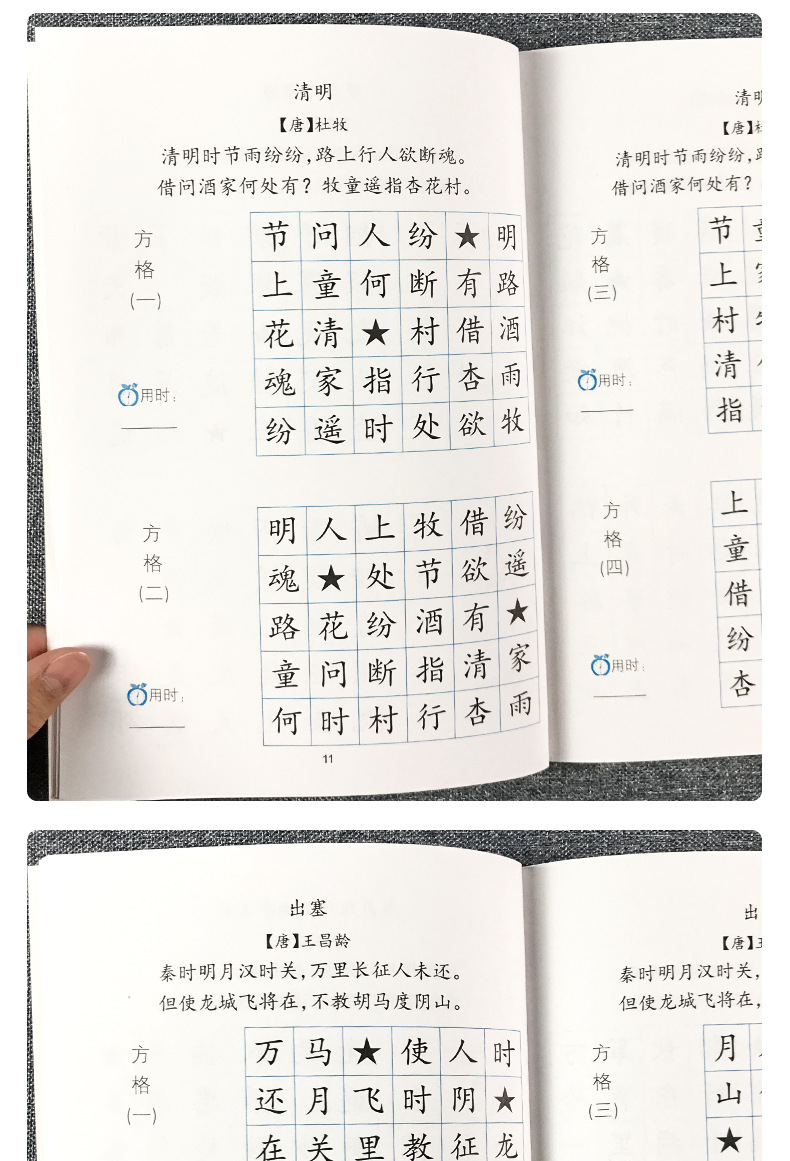 清明
【唐】杜牧
清明时节雨纷纷，路上行人欲断魂。
借问酒家何处有？牧童遥指杏花村。
方格(一)
节 问 人 纷 ★ 明
上 童 何 断 有 路
花 清 ★ 村 借 酒
魂 家 指 行 杏 雨
纷 遥 时 处 欲 牧
用时：
方格(二)
明 人 上 牧 借 纷
魂 ★ 处 节 欲 遥
路 花 纷 酒 有 ★
童 问 断 指 清 家
何 时 村 行 杏 雨
用时：
11
清明
【唐】
清明时节雨纷纷，
借问酒家何处有？
方格(三)
节 童
上 家
村
清
指
用时：
方格(四)
上
童
借
纷
杏
用时：
出塞
【唐】王昌龄
秦时明月汉时关，万里长征人未还。
但使龙城飞将在，不教胡马度阴山。
方格(一)
万 马 ★ 使 人 时
还 月 飞 时 阴 ★
在 关 里 教 征 龙
出
【唐】
秦时明月汉时关，
但使龙城飞将在，
方格(三)
月
山
★